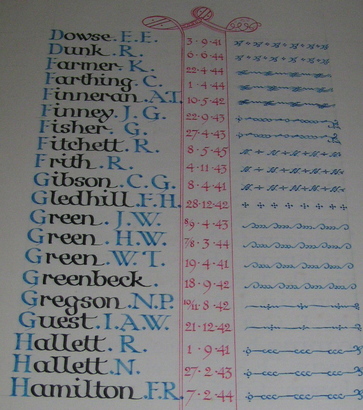 Dowse. E.E. 3·9·41
Dunk. R. 6·6·44
Farmer. K. 22·4·44
Farthing. C. 1·4·44
Finneran. A.T. 10·5·42
Finney. J.G. 22·9·43
Fisher. G. 27·4·43
Fitchett. R. 8·5·45
Frith. R. 4·11·43
Gibson. C.G. 8·4·41
Gledhill. F.H. 28·12·42
Green. J.W. 8/9·4·43
Green. H.W. 7/8·3·44
Green. W.T. 19·4·41
Greenbeck. 18·9·42
Gregson. N.P. 10/11·8·42
Guest. I.A.W. 21·12·42
Hallett. R. 1·9·41
Hallett. N. 27·2·43
Hamilton. F.R. 7·2·44